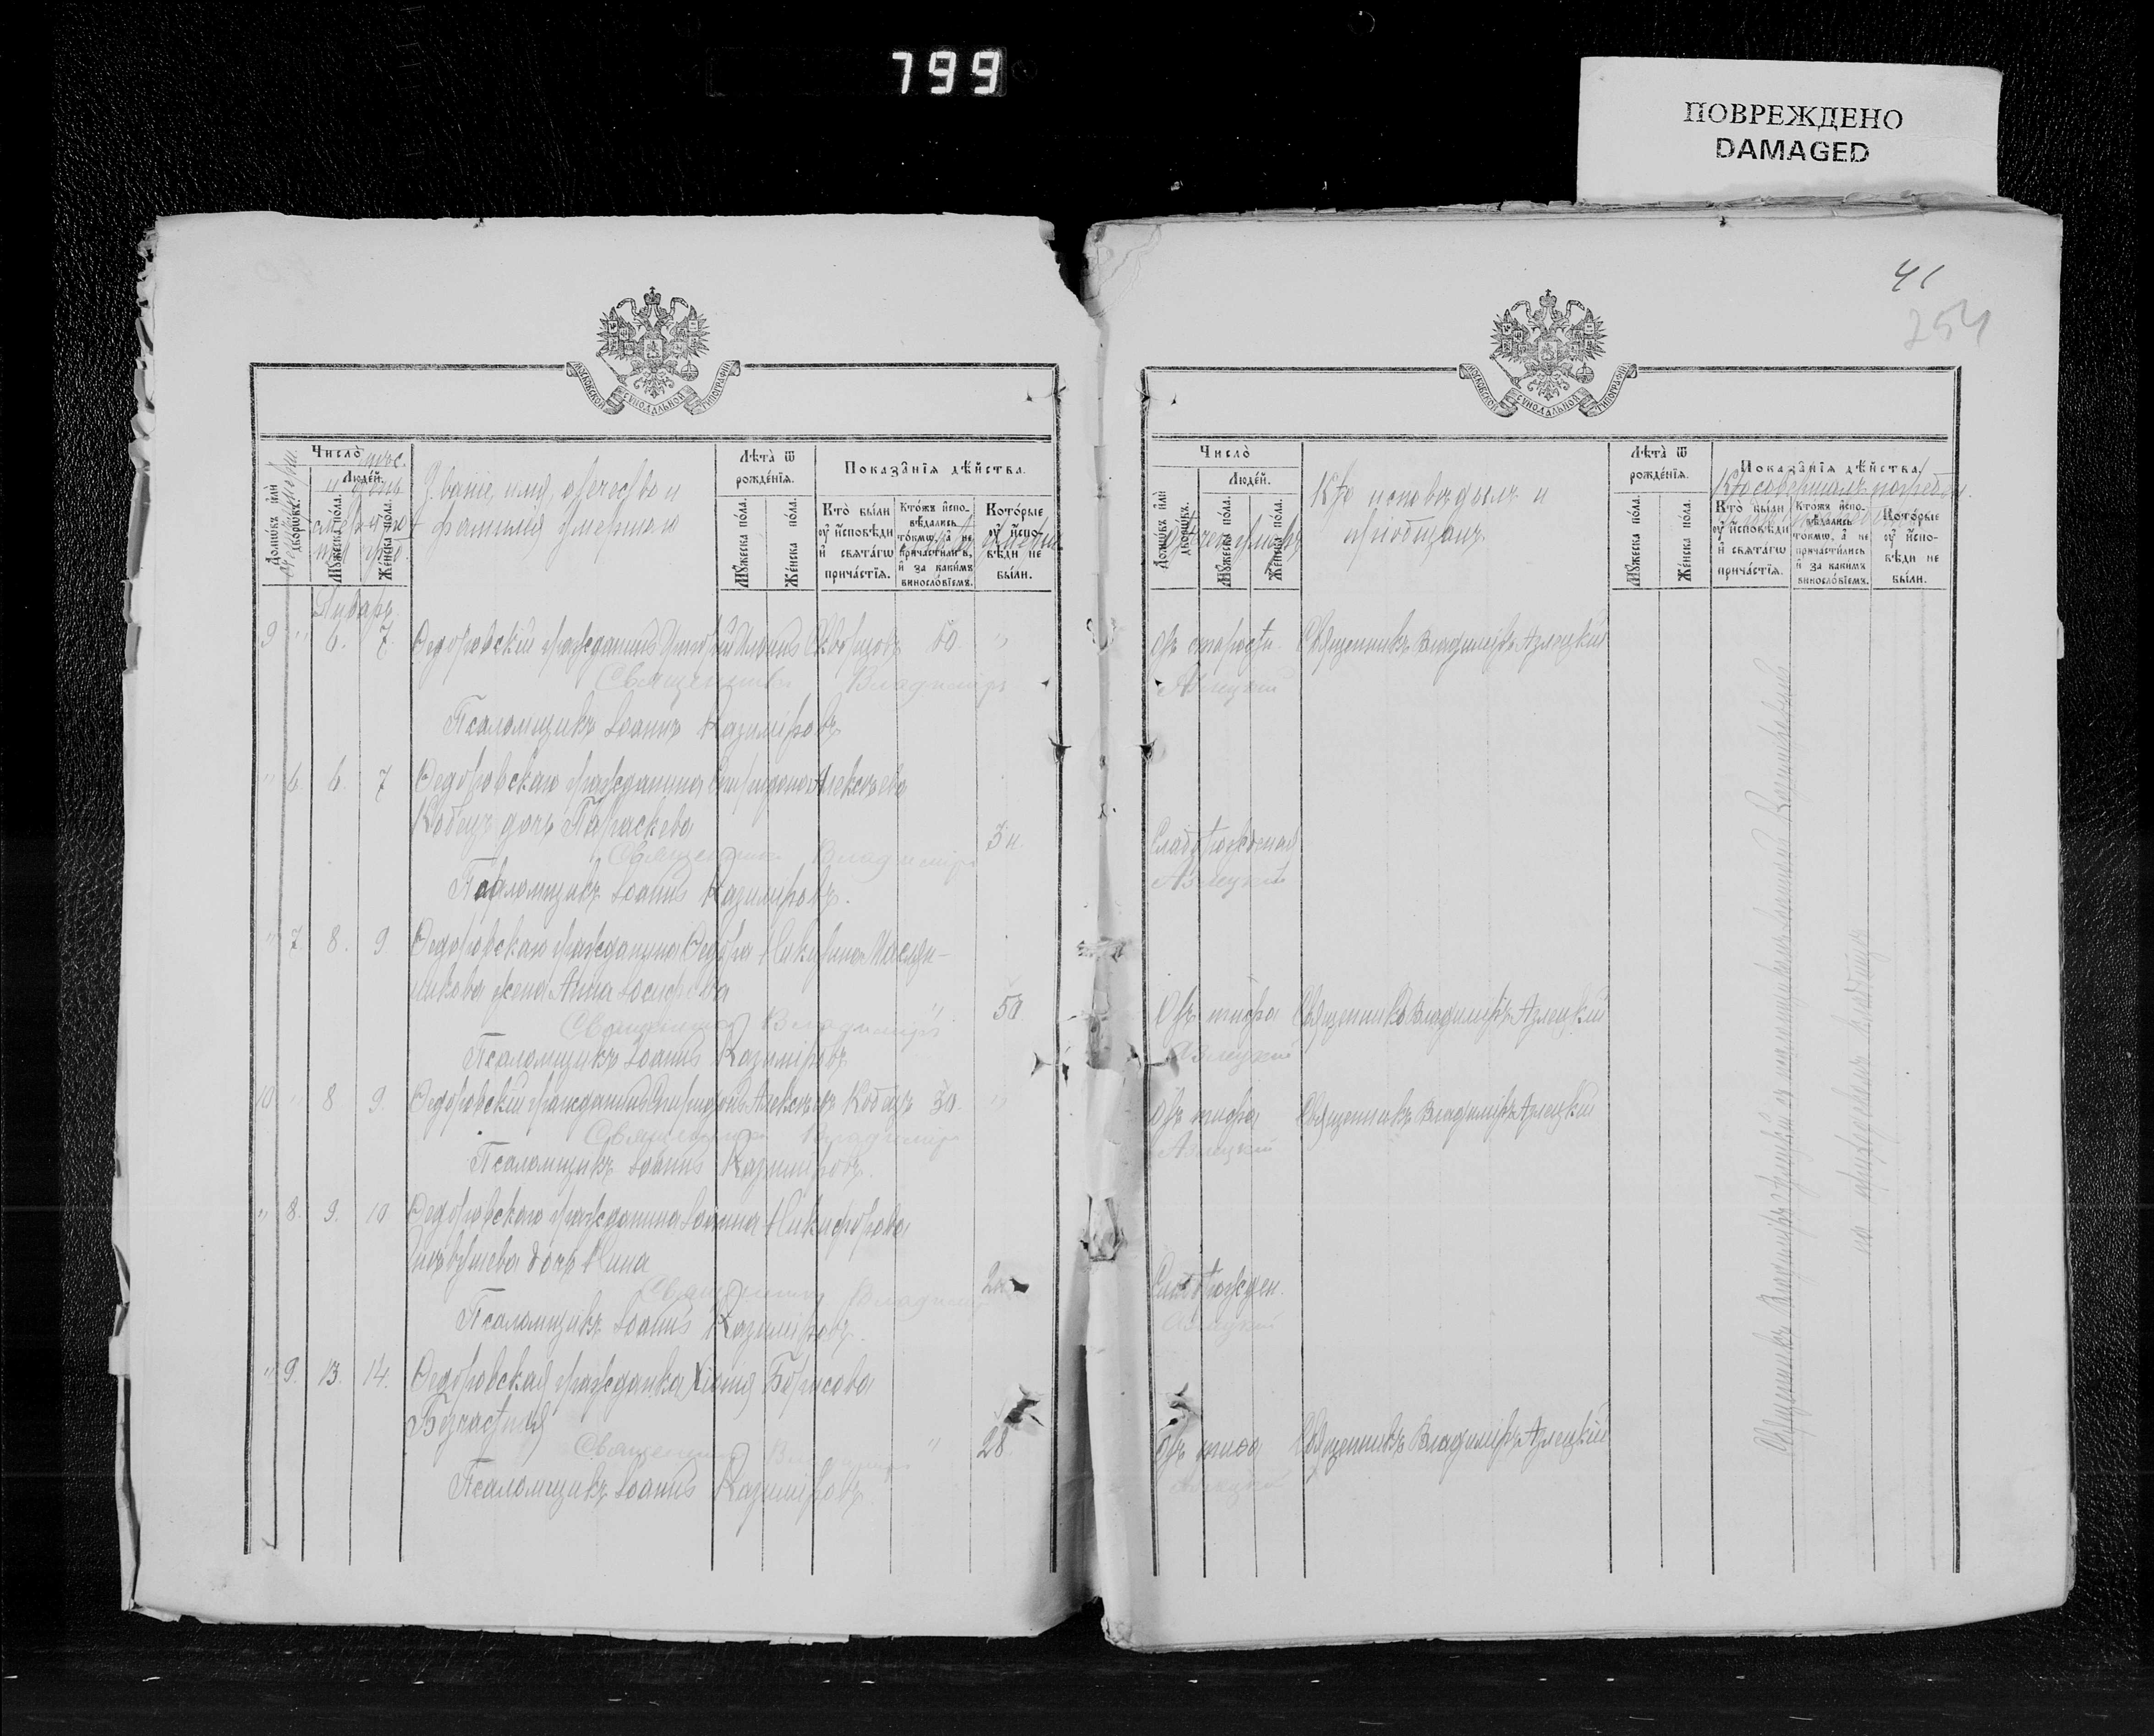 799
ПОВРЕЖДЕНО
DAMAGED
МОСКОВСКОЙ СѴНОДАЛЬНОЙ ТИПОГРАФІИ
Число̀
Люде́й.
Мꙋ́жеска по́ла.
Же́нска по́ла.
Званіе, имя, отечество и
фамилія умершаго
Лѣта̀ ѿ
рожде́нїя.
Мꙋ́жеска по́ла.
Же́нска по́ла.
Показа̑нїя дѣ́йства.
Кто̀ бы́ли
ѹ҆ и҆́сповѣди
и҆ свѧта́гѡ
прича́стїѧ.
Кто́жъ и҆спо-
вѣ́дались
то́кмѡ, а҆ не
причасти́лись,
и҆ за каки́мъ
винослóвїемъ.
Кото́рые
ѹ҆ и҆спо-
вѣди не
бы́ли.
Январь
9 " 6. 7. Федоровскій гражданинъ Скворцовъ 60. "
Священникъ Владиміръ
Псаломщикъ Іоаннъ Казиміровъ
" 6. 6. 7 Федоровскаго гражданина Спиридона Алексѣева
Кобецъ дочь Параскева
3 н.
Священникъ Владиміръ
Псаломщикъ Іоаннъ Казиміровъ.
" 7. 8. 9. Федоровскаго гражданина Федора
жена Анна Іосифова
" 50
Священникъ Владиміръ
Псаломщикъ Іоаннъ Казиміровъ
10 " 8. 9. Федоровскій гражданинъ Спиридонъ Алексѣевъ Кобецъ 30. "
Священникъ Владиміръ
Псаломщикъ Іоаннъ Казиміровъ.
" 8. 9. 10 Федоровскаго гражданина Іоанна Никифорова
дочь Нина
Священникъ Владиміръ
Псаломщикъ Іоаннъ Казиміровъ.
" 9. 13. 14. Федоровская гражданка Борисова
" 28.
Священникъ Владиміръ
Псаломщикъ Іоаннъ Казиміровъ
41
254
МОСКОВСКОЙ СѴНОДАЛЬНОЙ ТИПОГРАФІИ
Число̀
Люде́й.
Мꙋ́жеска по́ла.
Же́нска по́ла.
Отчего умеръ
Кто исповѣдывалъ и
пріобщалъ
Лѣта̀ ѿ
рожде́нїя.
Мꙋ́жеска по́ла.
Же́нска по́ла.
Показа̑нїя дѣ́йства.
Кто совершалъ погребен.
Кто̀ бы́ли
ѹ҆ и҆́сповѣди
и҆ свѧта́гѡ
прича́стїѧ.
Кто́жъ и҆спо-
вѣ́дались
то́кмѡ, а҆ не
причасти́лись
и҆ за каки́мъ
винослóвїемъ.
Кото́рые
ѹ҆ и҆спо-
вѣди не
бы́ли.
Отъ старости. Священникъ Владиміръ Азлецкій
Азлецкій
Азлецкій
Отъ тифа Священникъ Владиміръ Азлецкій
Азлецкій
Отъ тифа Священникъ Владиміръ Азлецкій
Азлецкій
Азлецкій
Отъ тифа Священникъ Владиміръ Азлецкій
Азлецкій
Священникъ Владиміръ Азлецкій съ псаломщикомъ Іоанномъ Казиміровымъ
на приходскомъ кладбищѣ